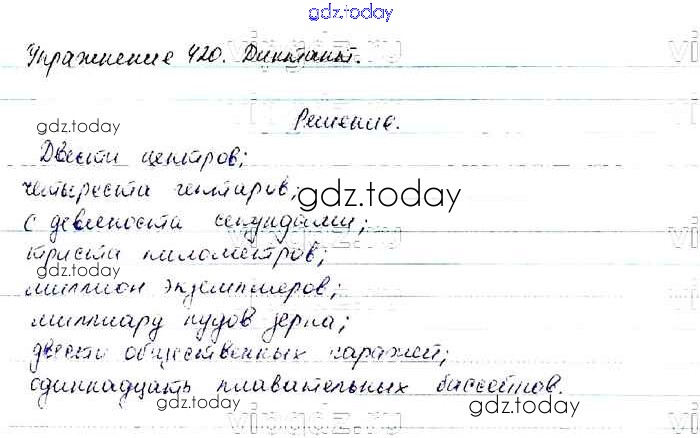 gdz.today
Упражнение 420. Диктант.
gdz.today
Решение.
Двести центров;
четыреста гектаров;
gdz.today
с девяноста секундами;
триста километров;
gdz.today
миллион экземпляров;
миллиард пудов зерна;
двести общественных гаражей;
одиннадцать плавательных бассейнов.
gdz.today
gdz.today